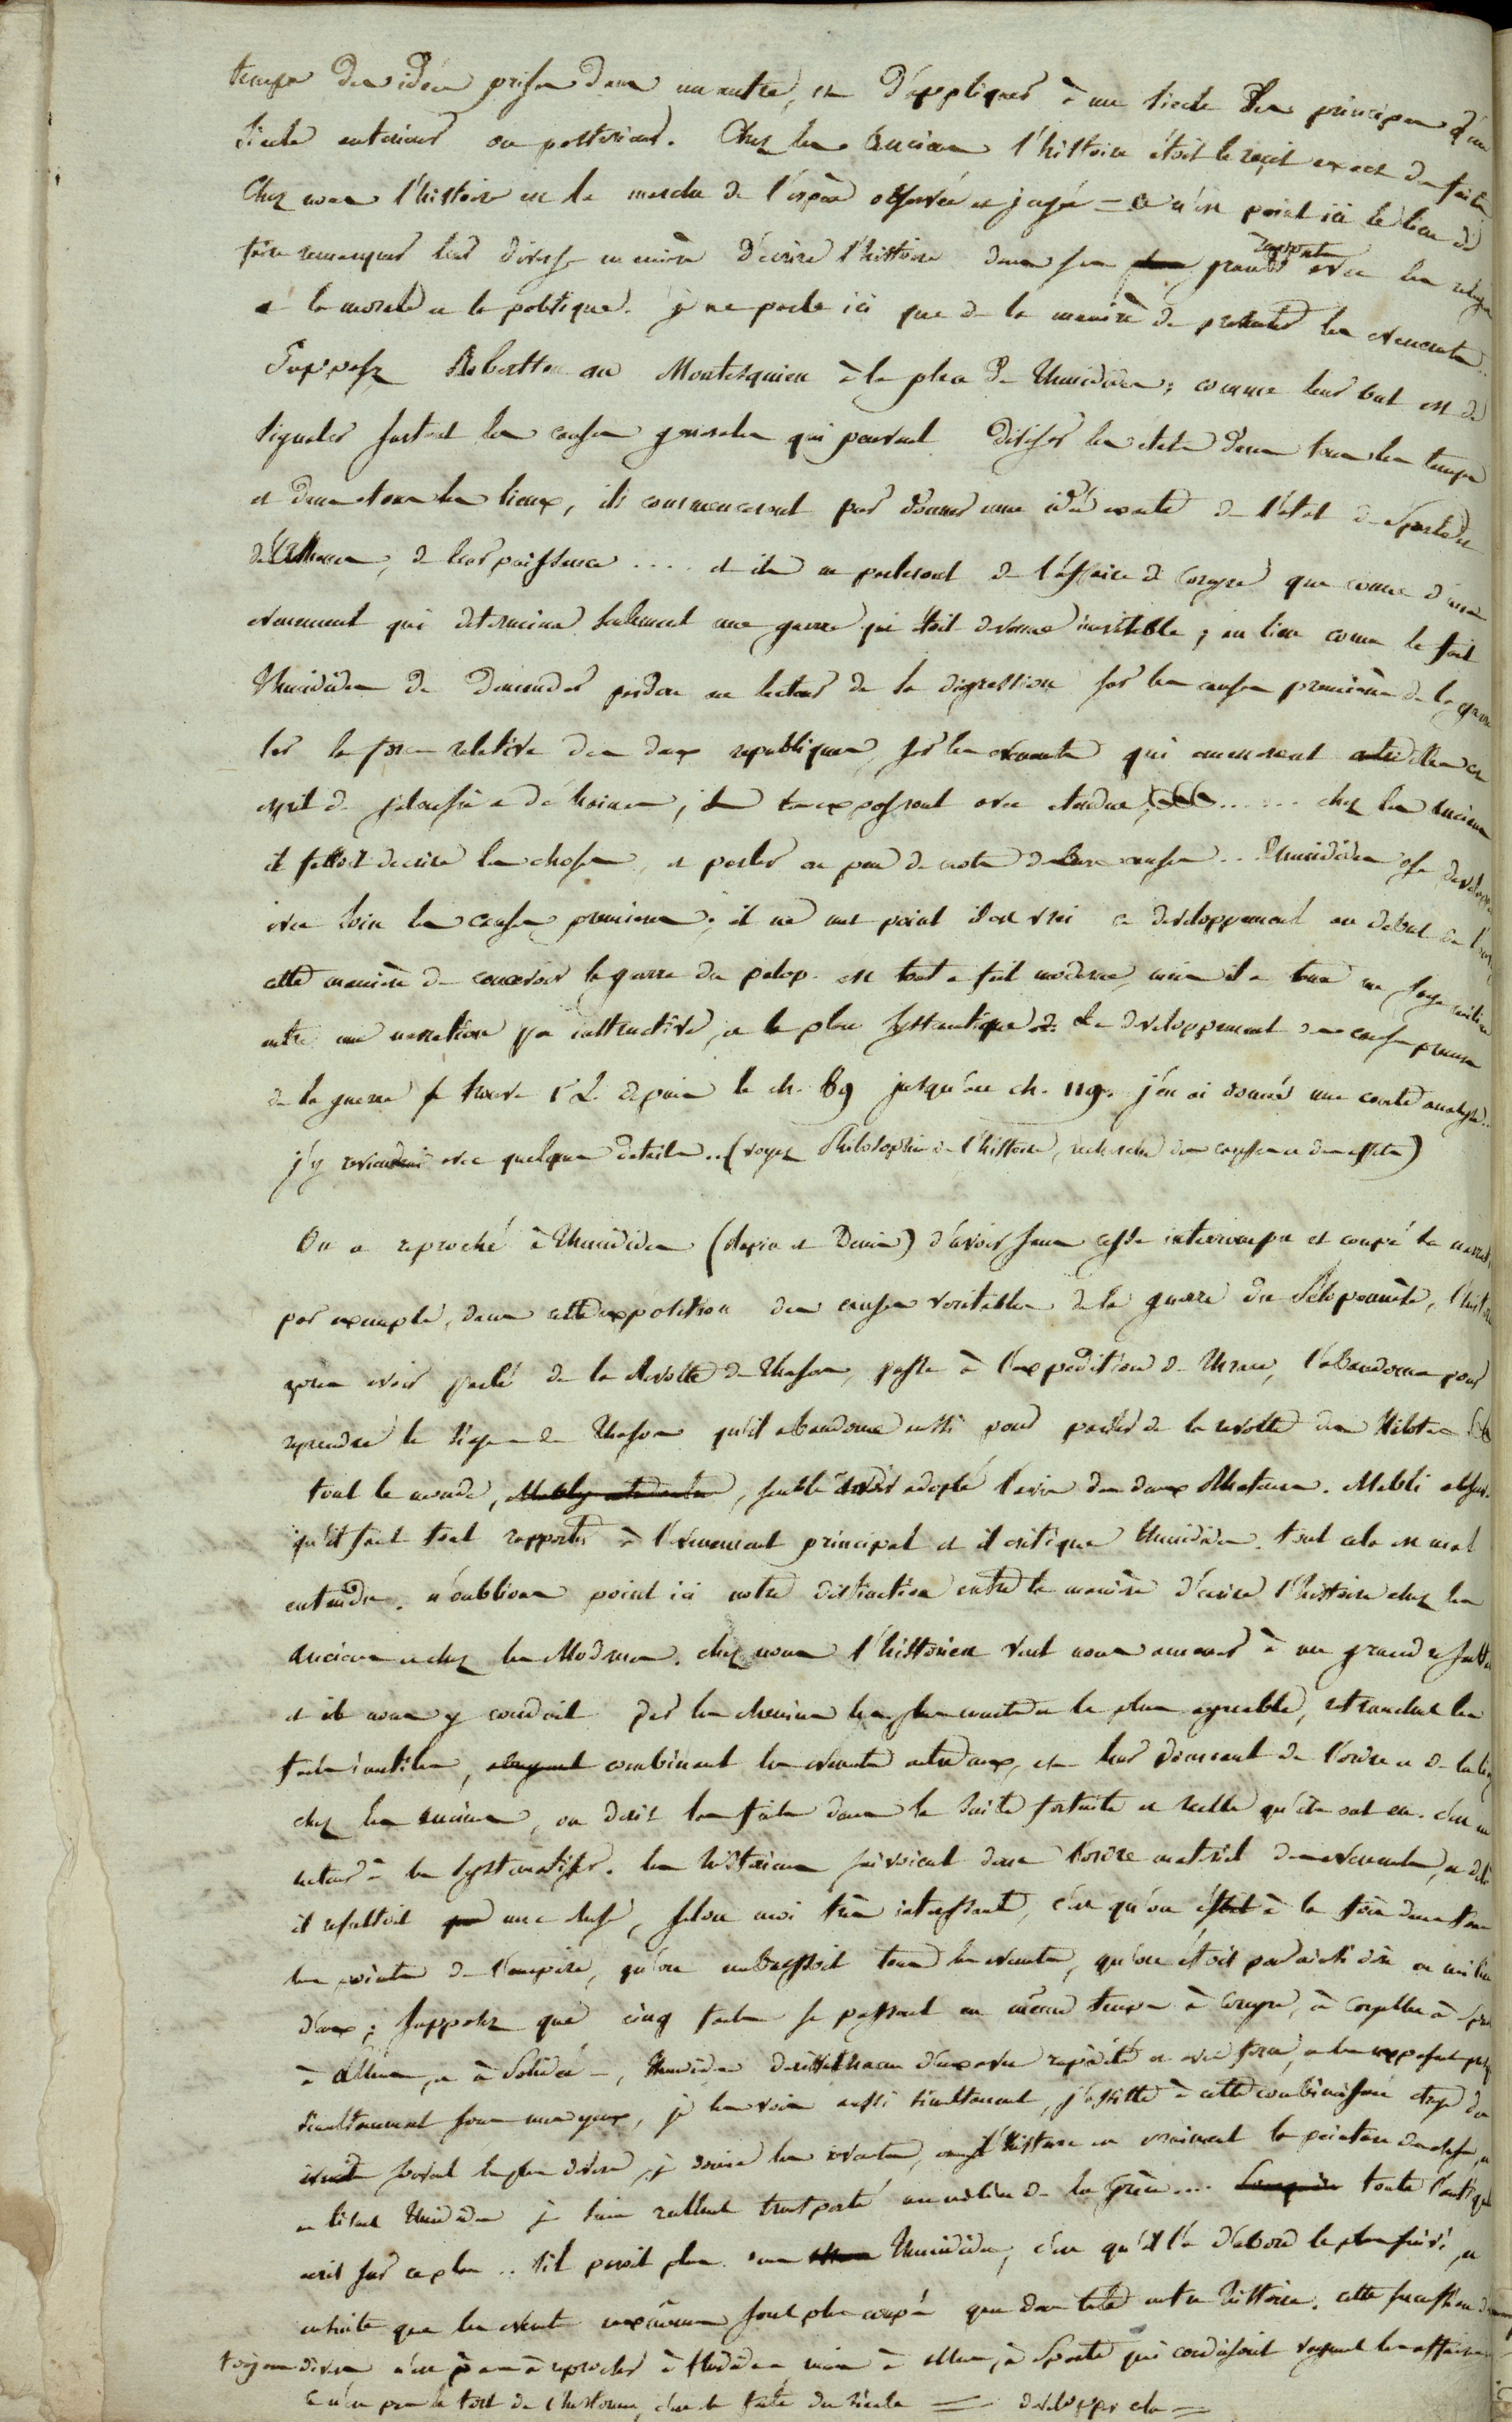 temps des idées prises dans un autre, et d'appliquer à un siecle les principes d'un
siecle anterieur ou posterieur. Chez les Anciens l'histoire étoit le recit exact des faits
Chez nous l'histoire est la marche de l'espèce observée et jugée = ce n'est point ici le lieu de
faire remarquer leur diverse maniere d'écrire l'histoire dans ses grands rapports avec la
et la morale et la politique. je ne parle ici que de la maniere de presenter les evenements..
Supposez Robertson ou Montesquieu à la place de Thucidides; comme leur but est de
signaler surtout les causes generales qui peuvent diviser les etats dans tous les temps
et dans tous les lieux, ils commenceront par donner une idée exacte de l'état de Sparte et
d'Athenes, de leur puissance .... et ils ne parleront de l'affaire de Corcyre que comme d'un
evenement qui determina seulement une guerre qui étoit devenue inevitable; au lieu comme le fait
Thucidides de demander pardon au lecteur de la digression sur les causes premieres de la guerre
sur la force relative des deux republiques, sur les evenements qui amenerent entre elles cet
esprit de jalousie et de haine, ils les exposeront avec etendue ...... chez les anciens
il falloit decrire les choses, et parler en peu de mots de leurs causes .. Thucidides ose developper
avec soin les causes premieres; il ne met point il est vrai ce developpement au debut de
cette maniere de concevoir la guerre du pelop. est tout a fait moderne, mais il a tenu un sage milieu
entre une narration peu instructive, et le plan systematique. Le developpement des causes premieres
de la guerre se trouve 1 L. depuis le ch. 89 jusqu'au ch. 119. j'en ai donné une courte analyse..
j'y reviendrai avec quelques details .. (voyez Philosophie de l'histoire, recherche des causes et des effets)
On a reproché à Thucidides (Rapin et Denis) d'avoir sans cesse interrompu et coupé la
par exemple, dans cette exposition des causes veritables de la guerre du Péloponnèse,
après avoir parlé de la revolte de Thasos, passe à l'expedition de Thrace, l'abandonne pour
reprendre le siege de Thasos qu'il abandonne aussi pour parler de la revolte des Hilotes
tout le monde, semble avoir adopté l'avis des deux Rheteurs. Mabli
qu'il faut tout rapporter à l'evenement principal et il critique Thucidides. tout cela est mal
entendu. n'oublions point ici notre distinction entre la maniere d'écrire l'histoire chez les
Anciens et chez les Modernes. chez nous l'historien veut nous amener à un grand resultat
et il nous y conduit par les chemins les plus courts et les plus agreables, retranchant les
faits inutiles, combinant les evenements entre eux, et leur donnant de l'ordre et de la
chez les anciens, on decrit les faits dans la suite fortuite et reelle qu'ils ont eu.
à les systematiser. les historiens suivoient donc l'ordre materiel des evenements, et de là
il resultoit une chose, selon moi très interessante, c'est qu'on étoit à la fois dans tous
les points de l'empire, qu'on embrassoit tous les evenements, qu'on étoit pour ainsi dire au milieu
d'eux; supposez que cinq faits se passent en même temps à Corcyre, à Corinthe à
à Athenes, et à Potidée —, Thucidides decrit chacun d'eux avec rapidité et avec force, et les exposant presque
simultanement sous mes yeux, je les vois aussi simultanement, j'assiste à cette combinaison
seroient les plus divers, je devine les evenements, l'histoire est vraiment la peinture des choses,
en lisant Thucidides je suis reellement transporté au milieu de la Grèce.... toute l'antiquité
ecrit sur ce plan .. s'il paroit plus dans Thucidides, c'est qu'il l'a d'abord le plus suivi, et
ensuite que les evenements eux mêmes sont plus coupés que dans toute autre histoire. cette succession
toujours diverse n'est pas à reprocher à Thucidides mais à Athenes, à Sparte qui conduisoient les affaires
Ce n'est pas le tort de l'historien, c'est la faute du siecle = developper cela =